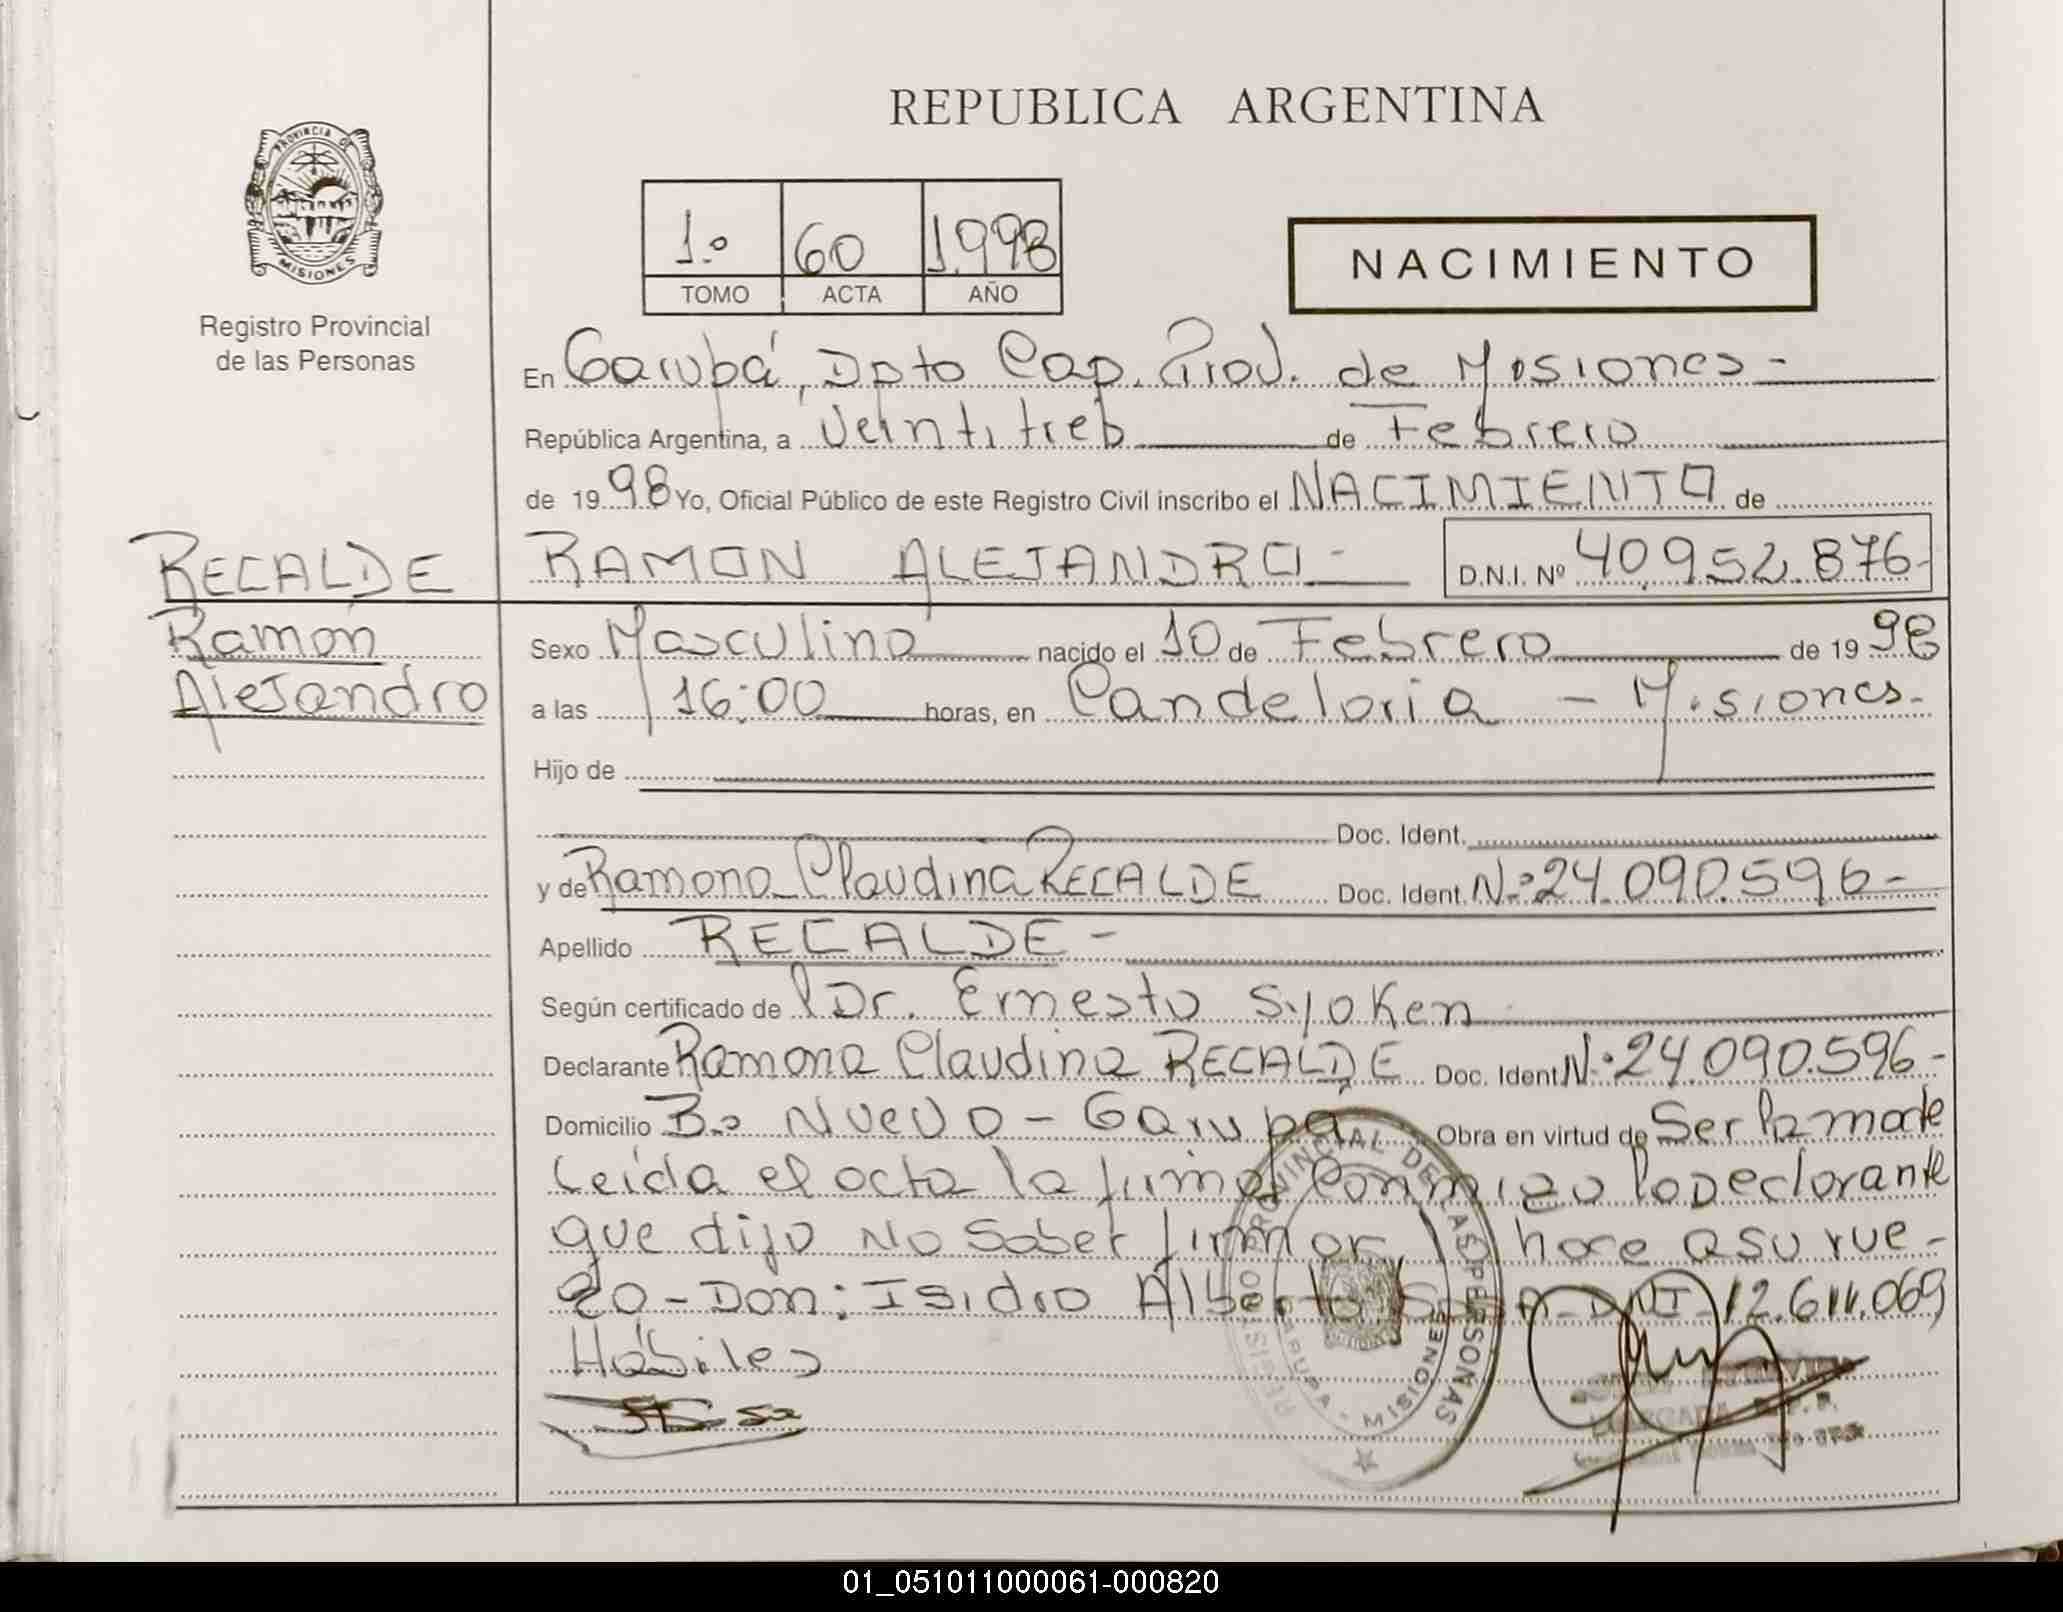 REPUBLICA ARGENTINA
PROVINCIA DE
MISIONES
Registro Provincial
de las Personas
1.º 60 1.998
TOMO ACTA AÑO
NACIMIENTO
En Garupá, Dpto Cap. Prov. de Misiones -
República Argentina, a Veintitres de Febrero
de 1998 Yo, Oficial Público de este Registro Civil inscribo el NACIMIENTO de
RECALDE
Ramón
Alejandro
RAMON ALEJANDRO - D.N.I. Nº 40.952.876-
Sexo Masculino nacido el 10 de Febrero de 1998
a las 16:00 horas, en Candelaria - Misiones.
Hijo de
Doc. Ident.
y de Ramona Claudina RECALDE Doc. Ident. Nº 24.090.596-
Apellido RECALDE -
Según certificado de Dr. Ernesto Syoken
Declarante Ramona Claudina RECALDE Doc. Ident Nº 24.090.596-
Domicilio Bº Nuevo - Garupá Obra en virtud de Ser la madre
Leída el acta la firma conmigo la Declarante
que dijo No Saber firmar, hace a su rue-
go - Don: Isidro Alberto SOSA - DNI - 12.611.069
Hábiles
REGISTRO PROVINCIAL DE LAS PERSONAS
GARUPA - MISIONES
01_051011000061-000820